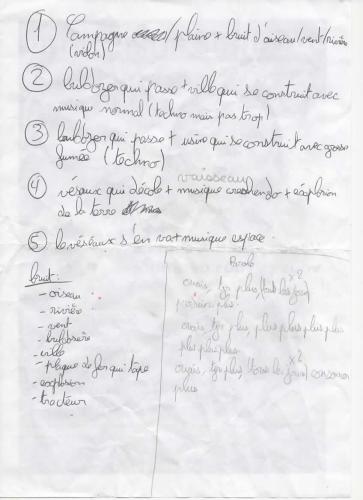 ① Campagne /plaine + bruit d'oiseau/vent/rivière
(violon)
② buldozer qui passe + ville qui se construit avec
musique normal (techno mais pas trop)
③ buldozer qui passe + usine qui se construit avec grosse
fumée (techno)
vaisseau
④ véseaux qui décole + musique creshendo + explosion
de la terre
⑤ le véseaux s'en va + musique espace
bruit :
- oiseau
- rivière
- vent
- buldozère
- ville
- plaque de fer qui tape
- explosion
- tracteur
Parole
ouais, plus, tous les jours x2
ouais, plus, plus plus plus plus
plus plus plus
ouais, plus, tous les jours x2 consommer
plus